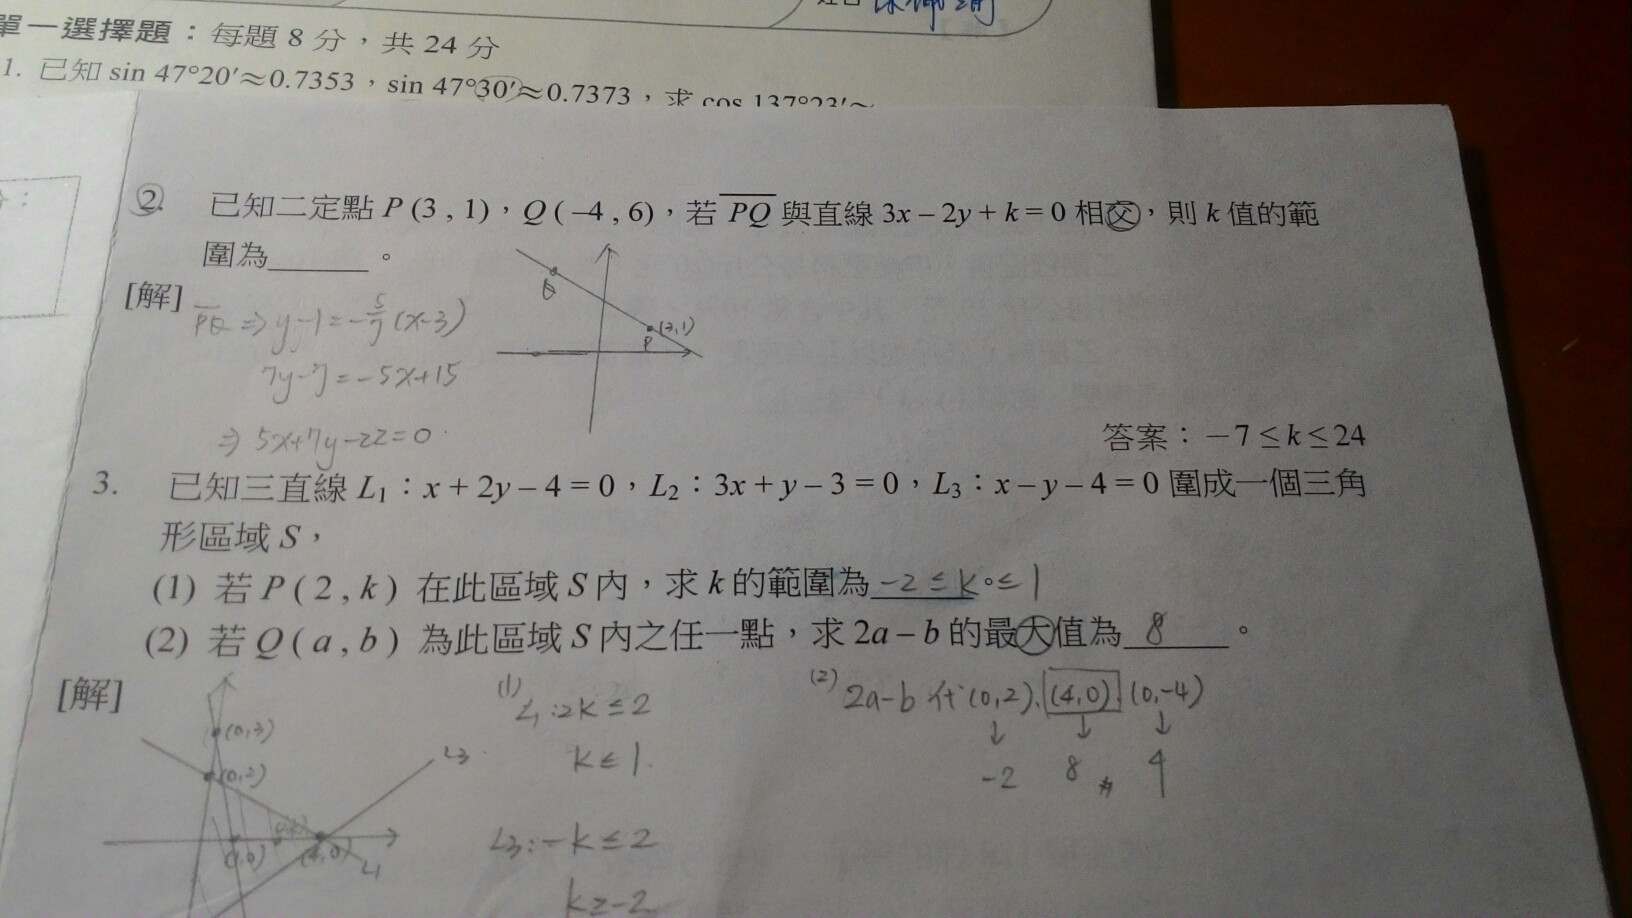 單一選擇題：每題 8 分，共 24 分
1. 已知 sin 47°20′≈0.7353，sin 47°30′≈0.7373，求 cos 137°23′≈
2. 已知二定點 P (3 , 1)，Q ( –4 , 6)，若 PQ 與直線 3x – 2y + k = 0 相交，則 k 值的範
圍為______。
[解]
PQ ⇒ y-1=-5/7(x-3)
7y-7=-5x+15
⇒ 5x+7y-22=0
Q
(3,1)
P
答案：－7 ≤ k ≤ 24
3. 已知三直線 L1：x + 2y – 4 = 0，L2：3x + y – 3 = 0，L3：x – y – 4 = 0 圍成一個三角
形區域 S，
(1) 若 P ( 2 , k ) 在此區域 S 內，求 k 的範圍為 -2 ≤ k ≤ 1。
(2) 若 Q ( a , b ) 為此區域 S 內之任一點，求 2a – b 的最大值為 8 。
[解]
(0,3)
(0,2)
L3
(1,0)
(4,0)
L1
(1)
L1:2k≤2
k≤1.
L3:-k≤2
k≥-2
(2) 2a-b 代(0,2).(4,0).(0,-4)
↓ ↓ ↓
-2 8 # 4